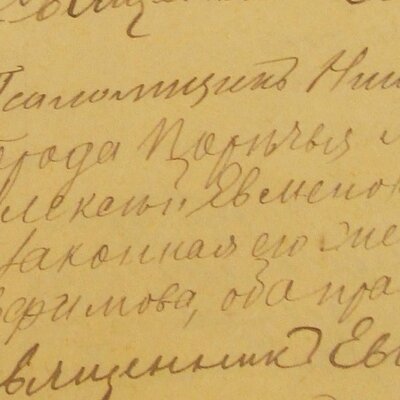 Священник Е
Псаломщикъ Ник
города Царичья
лексѣй Евменов
законная его же
Ефимова, оба пра
священникъ Ев